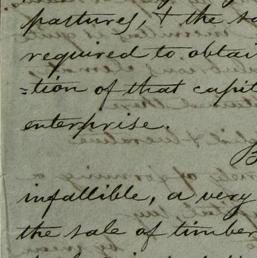 pastures, & the sa
required to obtai
=tion of that capit
enterprise.
B
infallible, a very
the sale of timber